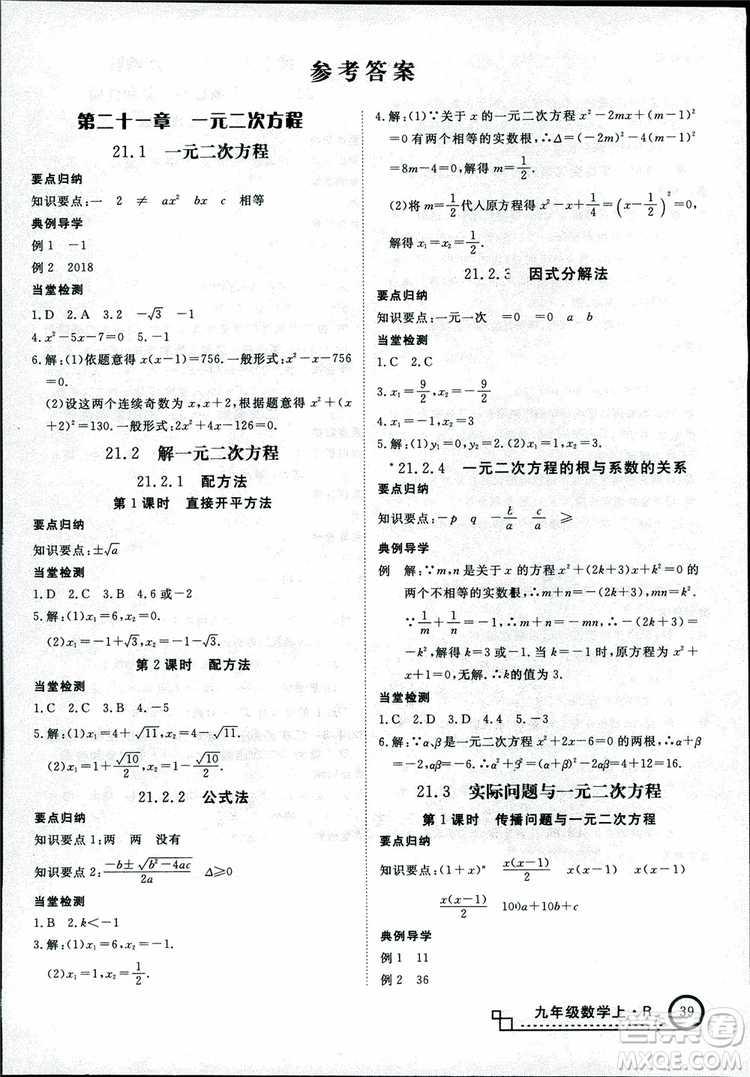 参考答案
第二十一章 一元二次方程
21.1 一元二次方程
要点归纳
知识要点:一 2 ≠ ax² bx c 相等
典例导学
例1 -1
例2 2018
当堂检测
1.D 2.A 3.2 -√3 -1
4.x²-5x-7=0 5.-1
6.解:(1)依题意得x(x-1)=756.一般形式:x²-x-756
=0.
(2)设这两个连续奇数为x,x+2.根据题意得x²+(x+
2)²=130.一般形式:2x²+4x-126=0.
21.2 解一元二次方程
21.2.1 配方法
第1课时 直接开平方法
要点归纳
知识要点:±√a
当堂检测
1.D 2.A 3.D 4.6或-2
5.解:(1)x₁=6,x₂=0.
(2)x₁=-1+√3,x₂=-1-√3.
第2课时 配方法
当堂检测
1.C 2.C 3.D 4.2
5.解:(1)x₁=4+√11,x₂=4-√11.
(2)x₁=-1+√10/2,x₂=-1-√10/2.
21.2.2 公式法
要点归纳
知识要点1:两 两 没有
知识要点2:(-b±√(b²-4ac))/2a Δ≥0
当堂检测
1.B 2.k<-1
3.解:(1)x₁=6,x₂=-1.
(2)x₁=1,x₂=1/2.
4.解:(1)∵关于x的一元二次方程x²-2mx+(m-1)²
=0有两个相等的实数根,∴Δ=(-2m)²-4(m-1)²
=8m-4=0,解得m=1/2.
(2)将m=1/2代入原方程得x²-x+1/4=(x-1/2)²=0.
解得x₁=x₂=1/2.
21.2.3 因式分解法
要点归纳
知识要点:一元一次 =0 =0 a b
当堂检测
1.C 2.C
3.x₁=9/2,x₂=-9/2
4.x₁=0,x₂=6
5.解:(1)x₁=0,x₂=9.(2)x₁=2,x₂=-1.
*21.2.4 一元二次方程的根与系数的关系
要点归纳
知识要点:-p q -b/a c/a ≥
典例导学
例 解:∵m,n是关于x的方程x²+(2k+3)x+k²=0的
两个不相等的实数根,∴m+n=-(2k+3),mn=k².
∵1/m+1/n=(m+n)/mn=-1,∴-(2k+3)/k²=-1,解得k₁=3,k₂=
-1.∵当k=-1时,Δ=(2k+3)²-4k²<0,原方程x²+
x+1=0,无解,∴k的值为3.
当堂检测
1.C 2.D 3.D 4.4 5.-3
6.解:∵α,β是一元二次方程x²+2x-6=0的根,∴α+β
=-2,αβ=-6.∴α²+β²=(α+β)²-2αβ=4+12=16.
21.3 实际问题与一元二次方程
第1课时 传播问题与一元二次方程
要点归纳
知识要点:(1+x)ⁿ x(x-1)/2 x(x-1) x(x-1)/2
x(x-1)/2 100a+10b+c
典例导学
例1 11
例2 36
九年级数学上·R 39
答案圈
MXQE.COM